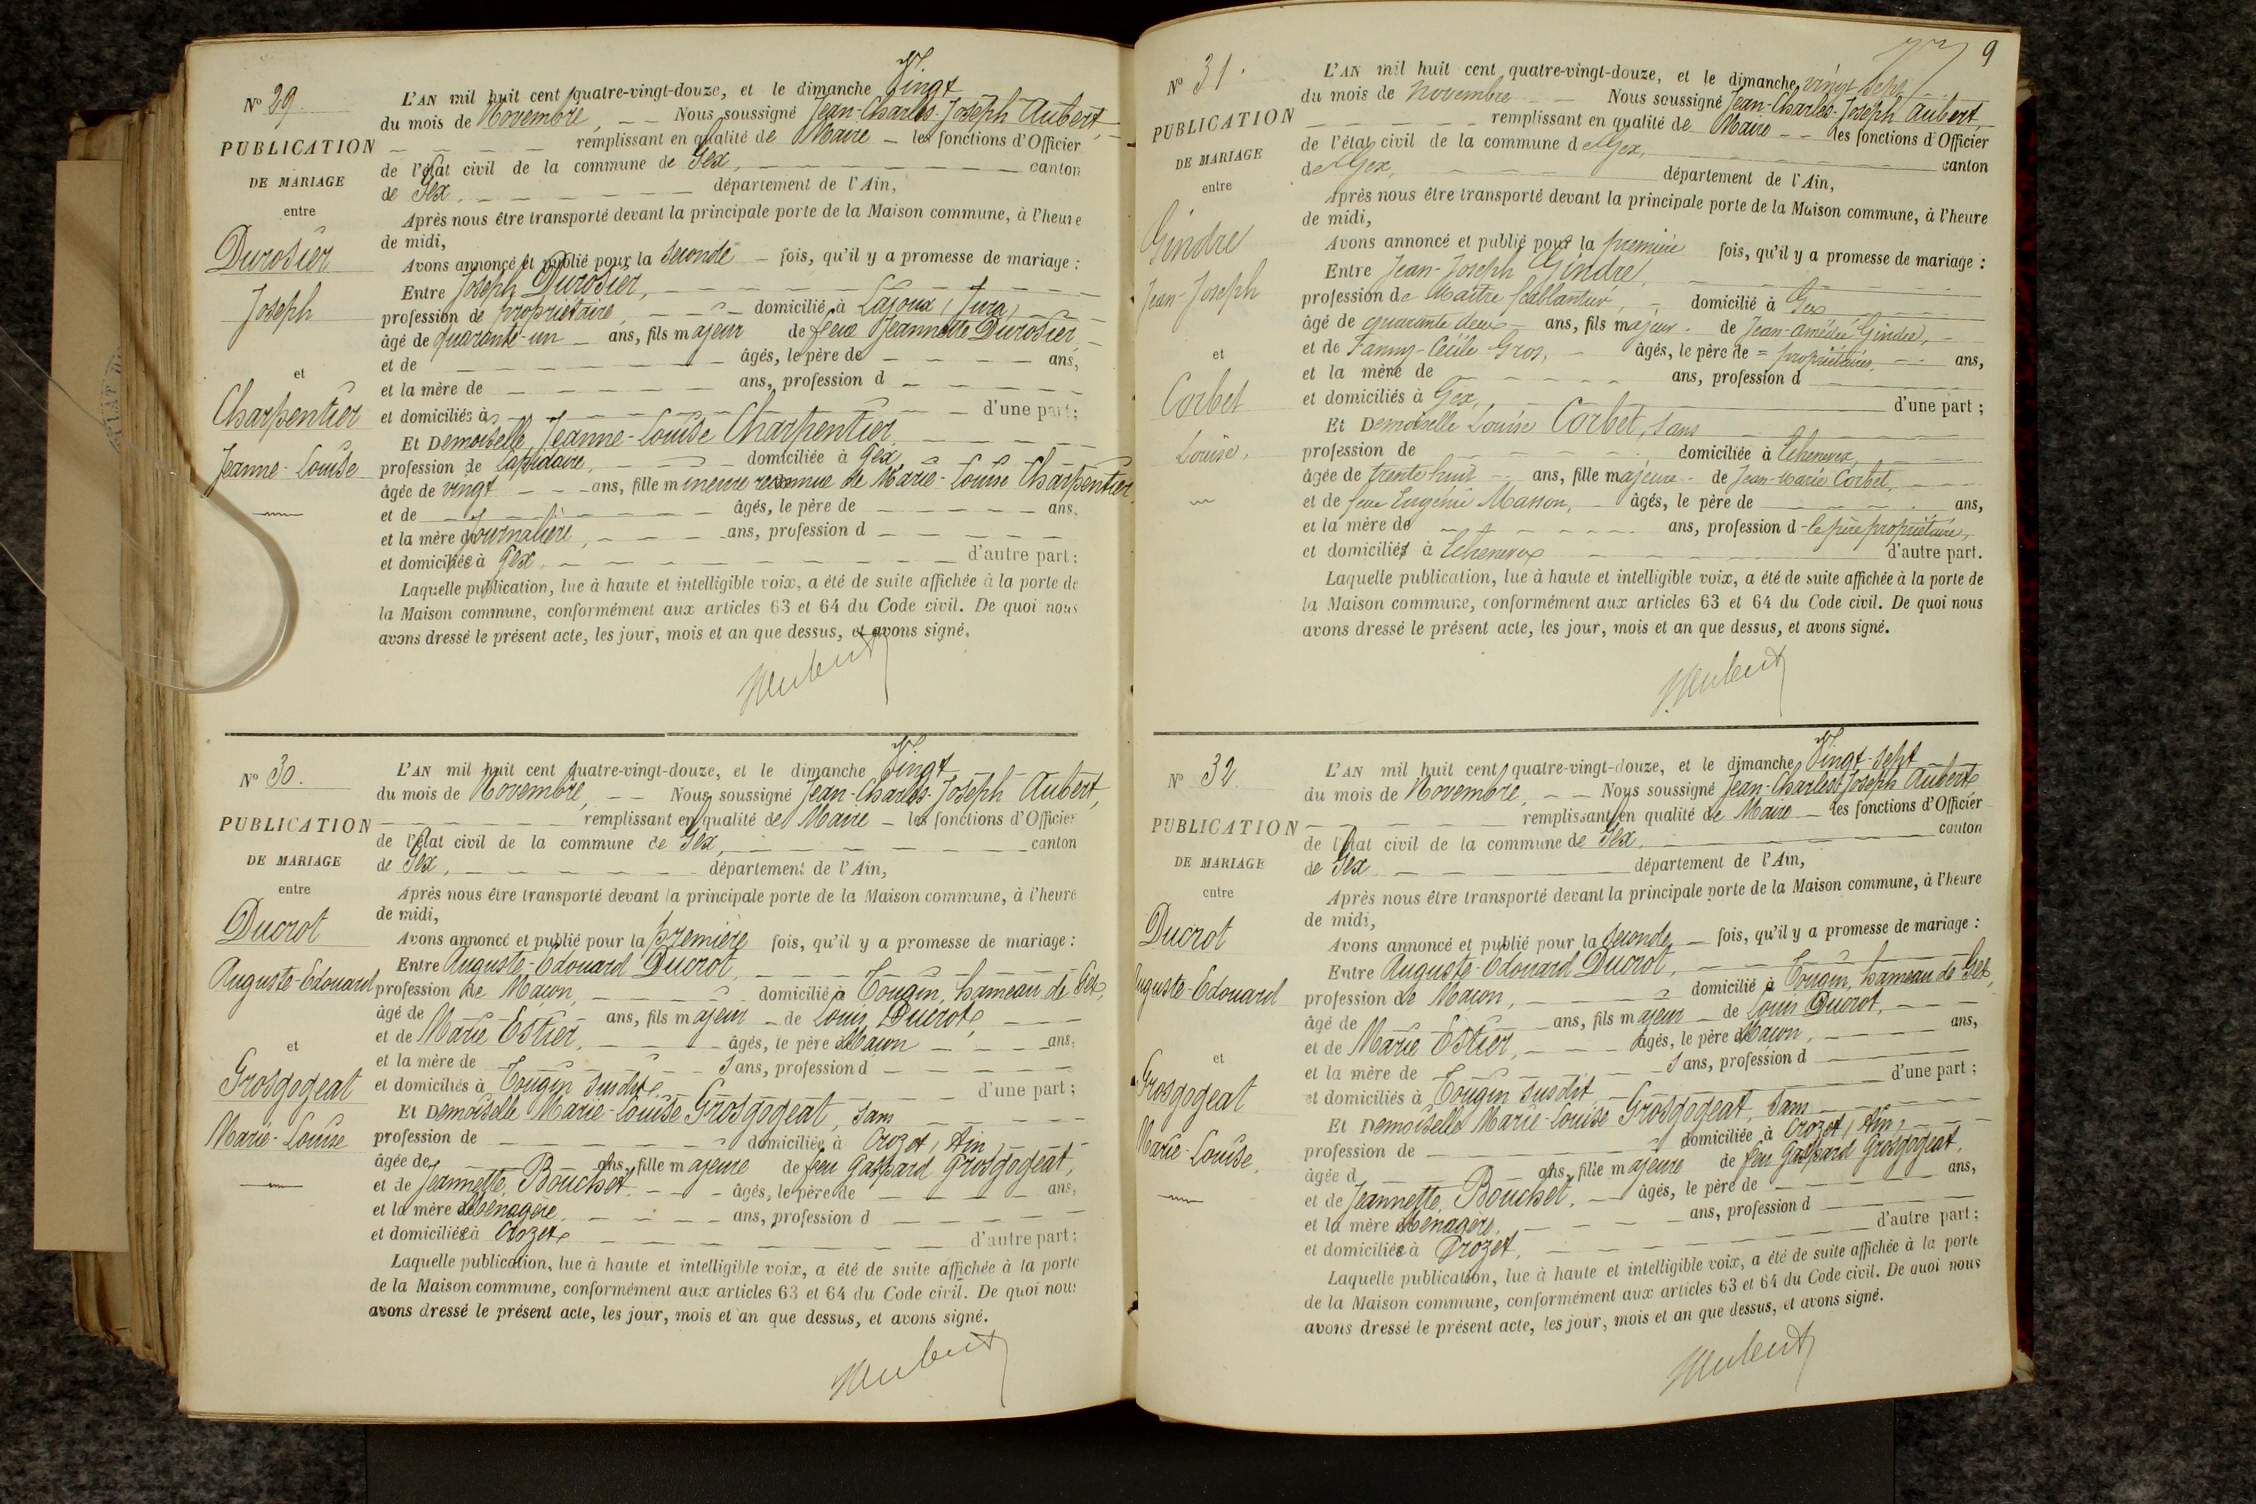 N° 29.
PUBLICATION
DE MARIAGE
entre
Durosier
Joseph
et
Charpentier
Jeanne-Louise
L'AN mil huit cent quatre-vingt-douze, et le dimanche Vingt
du mois de Novembre, Nous soussigné Jean-Charles-Joseph Aubert,
remplissant en qualité de Maire les fonctions d'Officier
de l'état civil de la commune de Gex, canton
de Gex, département de l'Ain,
Après nous être transporté devant la principale porte de la Maison commune, à l'heure
de midi,
Avons annoncé et publié pour la seconde fois, qu'il y a promesse de mariage :
Entre Joseph Durosier,
profession de propriétaire, domicilié à Lajoux, Jura,
âgé de quarante-un ans, fils majeur de feue Jeannette Durosier
et de âgés, le père de ans,
et la mère de ans, profession d
et domiciliés à d'une part;
Et Demoiselle Jeanne-Louise Charpentier
profession de Lapidaire, domiciliée à Gex
âgée de vingt ans, fille mineure reconnue de Marie-Louise Charpentier
et de âgés, le père de ans,
et la mère journalière, ans, profession d
et domiciliés à Gex d'autre part;
Laquelle publication, lue à haute et intelligible voix, a été de suite affichée à la porte de
la Maison commune, conformément aux articles 63 et 64 du Code civil. De quoi nous
avons dressé le présent acte, les jour, mois et an que dessus, et avons signé.
JAubert
N° 30.
PUBLICATION
DE MARIAGE
entre
Ducrot
Auguste-Edouard
et
Grosgogeat
Marie-Louise
L'AN mil huit cent quatre-vingt-douze, et le dimanche Vingt
du mois de Novembre, Nous soussigné Jean-Charles-Joseph Aubert,
remplissant en qualité de Maire les fonctions d'Officier
de l'état civil de la commune de Gex, canton
de Gex, département de l'Ain,
Après nous être transporté devant la principale porte de la Maison commune, à l'heure
de midi,
Avons annoncé et publié pour la première fois, qu'il y a promesse de mariage :
Entre Auguste-Edouard Ducrot,
profession de Maçon, domicilié à Tougin, hameau de Gex,
âgé de ans, fils majeur de Louis Ducrot,
et de Marie Estier, âgés, le père Maçon ans,
et la mère de Sans, profession d
et domiciliés à Tougin susdit, d'une part;
Et Demoiselle Marie-Louise Grosgogeat, sans
profession de domiciliée à Crozet, Ain,
âgée de ans, fille majeure de feu Gaspard Grosgogeat,
et de Jeannette Bouchet, âgés, le père de ans,
et la mère Ménagère, ans, profession d
et domiciliée à Crozet, d'autre part;
Laquelle publication, lue à haute et intelligible voix, a été de suite affichée à la porte
de la Maison commune, conformément aux articles 63 et 64 du Code civil. De quoi nous
avons dressé le présent acte, les jour, mois et an que dessus, et avons signé.
JAubert
9
N° 31.
PUBLICATION
DE MARIAGE
entre
Gindre
Jean-Joseph
et
Corbet
Louise,
L'AN mil huit cent quatre-vingt-douze, et le dimanche vingt sept
du mois de novembre Nous soussigné Jean-Charles-Joseph Aubert,
remplissant en qualité de Maire les fonctions d'Officier
de l'état civil de la commune de Gex, canton
de Gex, département de l'Ain,
Après nous être transporté devant la principale porte de la Maison commune, à l'heure
de midi,
Avons annoncé et publié pour la première fois, qu'il y a promesse de mariage :
Entre Jean-Joseph Gindre,
profession de Maître ferblantier, domicilié à Gex
âgé de quarante deux ans, fils majeur de Jean-Amédée Gindre,
et de Fanny-Cécile Gros, âgés, le père de = propriétaires, ans,
et la mère de ans, profession d
et domiciliés à Gex, d'une part ;
Et Demoiselle Louise Corbet, sans
profession de domiciliée à Echenevex,
âgée de trente huit ans, fille majeure de Jean-Marie Corbet,
et de feue Eugénie Masson, âgés, le père de ans,
et la mère de ans, profession d - le père propriétaire,
et domiciliés à Echenevex d'autre part.
Laquelle publication, lue à haute et intelligible voix, a été de suite affichée à la porte de
la Maison commune, conformément aux articles 63 et 64 du Code civil. De quoi nous
avons dressé le présent acte, les jour, mois et an que dessus, et avons signé.
JAubert
N° 32
PUBLICATION
DE MARIAGE
entre
Ducrot
Auguste-Edouard
et
Grosgogeat
Marie-Louise,
L'AN mil huit cent quatre-vingt-douze, et le dimanche Vingt-sept
du mois de Novembre, Nous soussigné Jean-Charles-Joseph Aubert
remplissant en qualité de Maire les fonctions d'Officier
de l'état civil de la commune de Gex, canton
de Gex département de l'Ain,
Après nous être transporté devant la principale porte de la Maison commune, à l'heure
de midi,
Avons annoncé et publié pour la seconde fois, qu'il y a promesse de mariage :
Entre Auguste-Edouard Ducrot,
profession de Maçon, domicilié à Tougin, hameau de Gex,
âgé de ans, fils majeur de Louis Ducrot,
et de Marie Estier, âgés, le père Maçon, ans,
et la mère de Sans, profession d
et domiciliés à Tougin susdit, d'une part ;
Et Demoiselle Marie-Louise Grosgogeat, sans
profession de domiciliée à Crozet, Ain,
âgée d ans, fille majeure de feu Gaspard Grosgogeat,
et de Jeannette Bouchet, âgés, le père de ans,
et la mère Ménagère, ans, profession d
et domiciliée à Crozet, d'autre part ;
Laquelle publication, lue à haute et intelligible voix, a été de suite affichée à la porte
de la Maison commune, conformément aux articles 63 et 64 du Code civil. De quoi nous
avons dressé le présent acte, les jour, mois et an que dessus, et avons signé.
JAubert